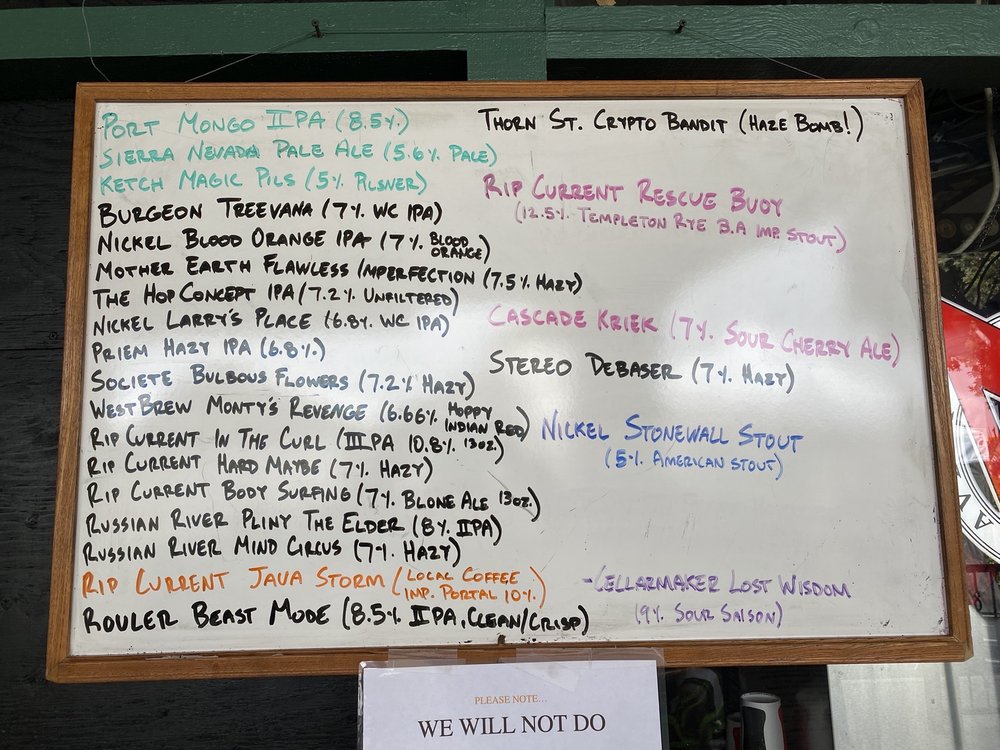 PORT MONGO IIPA (8.5%)
SIERRA NEVADA PALE ALE (5.6% PALE)
KETCH MAGIC PILS (5% PILSNER)
BURGEON TREEVANA (7% WC IPA)
NICKEL BLOOD ORANGE IPA (7% BLOOD ORANGE)
MOTHER EARTH FLAWLESS IMPERFECTION (7.5% HAZY)
THE HOP CONCEPT IPA (7.2% UNFILTERED)
NICKEL LARRY'S PLACE (6.8% WC IPA)
PRIEM HAZY IPA (6.8%)
SOCIETE BULBOUS FLOWERS (7.2% HAZY)
WESTBREW MONTY'S REVENGE (6.66% HOPPY INDIAN RED)
RIP CURRENT IN THE CURL (IIIPA 10.8% 13OZ.)
RIP CURRENT HARD MAYBE (7% HAZY)
RIP CURRENT BODY SURFING (7% BLONE ALE 13OZ.)
RUSSIAN RIVER PLINY THE ELDER (8% IIPA)
RUSSIAN RIVER MIND CIRCUS (7% HAZY)
RIP CURRENT JAVA STORM (LOCAL COFFEE
IMP. PORTAL 10%)
ROULER BEAST MODE (8.5% IIPA, CLEAN/CRISP)
THORN ST. CRYPTO BANDIT (HAZE BOMB!)
RIP CURRENT RESCUE BUOY
(12.5% TEMPLETON RYE B.A IMP. STOUT)
CASCADE KRIEK (7% SOUR CHERRY ALE)
STEREO DEBASER (7% HAZY)
NICKEL STONEWALL STOUT
(5% AMERICAN STOUT)
-CELLARMAKER LOST WISDOM
(9% SOUR SAISON)
PLEASE NOTE...
WE WILL NOT DO